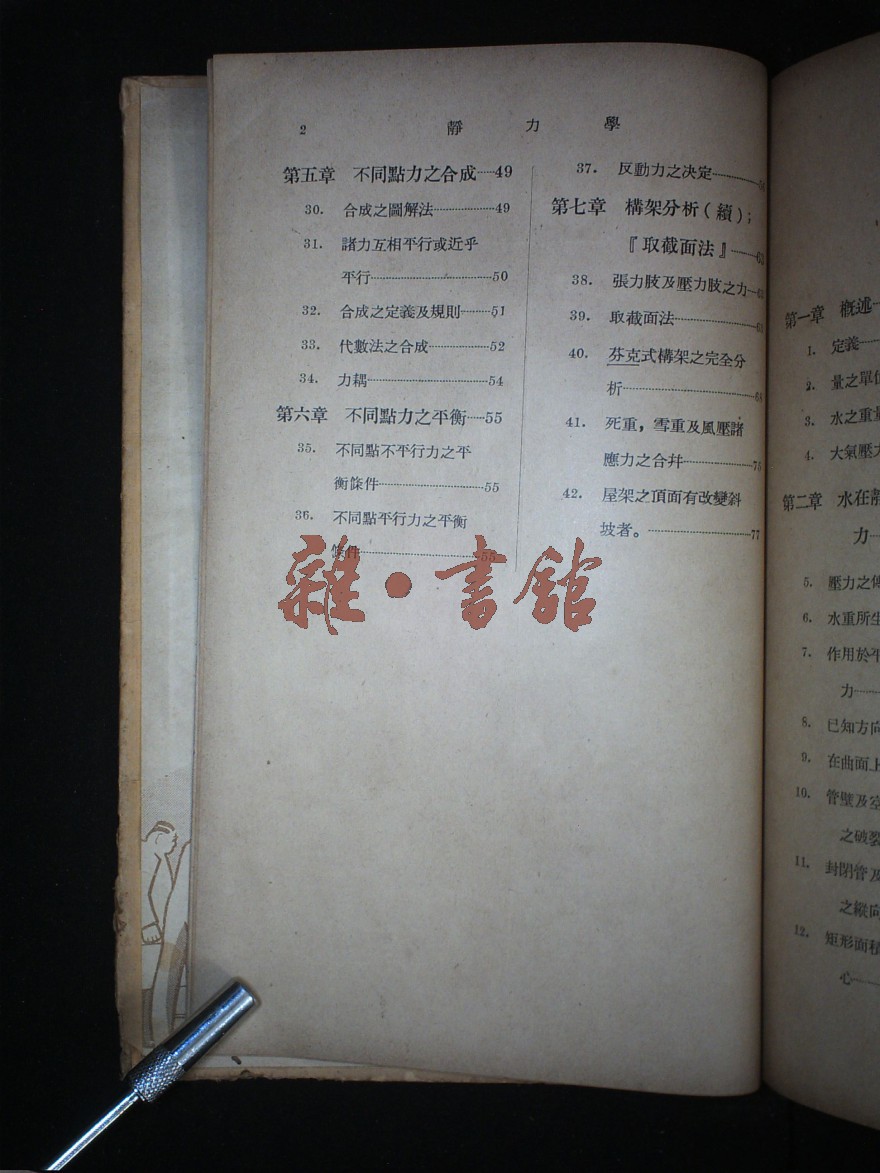 2 靜力學
第五章 不同點力之合成……49
30. 合成之圖解法……49
31. 諸力互相平行或近乎
平行……50
32. 合成之定義及規則……51
33. 代數法之合成……52
34. 力耦……54
第六章 不同點力之平衡……55
35. 不同點不平行力之平
衡條件……55
36. 不同點平行力之平衡
條件……55
37. 反動力之決定……
第七章 構架分析(續);
『取截面法』……63
38. 張力肢及壓力肢之力……
39. 取截面法……
40. 芬克式構架之完全分
析……68
41. 死重,雪重及風壓諸
應力之合幷……75
42. 屋架之頂面有改變斜
坡者。……77
雜·書館
第一章 概述…
1. 定義…
2. 量之單位
3. 水之重量
4. 大氣壓力
第二章 水在靜
力…
5. 壓力之傳
6. 水重所生
7. 作用於平
力……
8. 已知方向
9. 在曲面上
10. 管壁及
之破裂
11. 封閉管及
之縱向
12. 矩形面積
心…